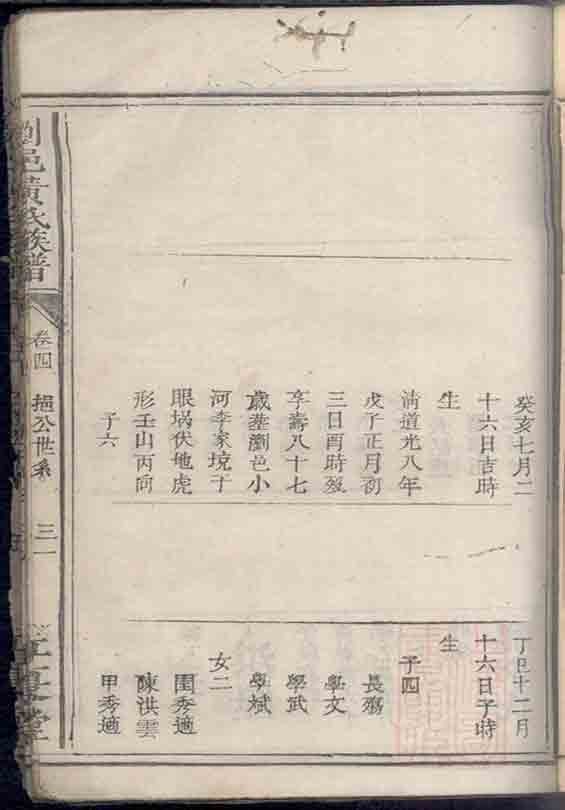 癸亥七月二
十六日吉時
生
清道光八年
戊子正月初
三日酉時歿
享壽八十七
歲塟瀏邑小
河李家境于
眼埚伏地虎
形壬山丙向
子六
丁巳十二月
十六日子時
生
子四
長
學文
學武
學斌
女二
閨秀適
陳洪雲
甲秀適
瀏邑黃氏族譜
卷四
公世系
三一
堂